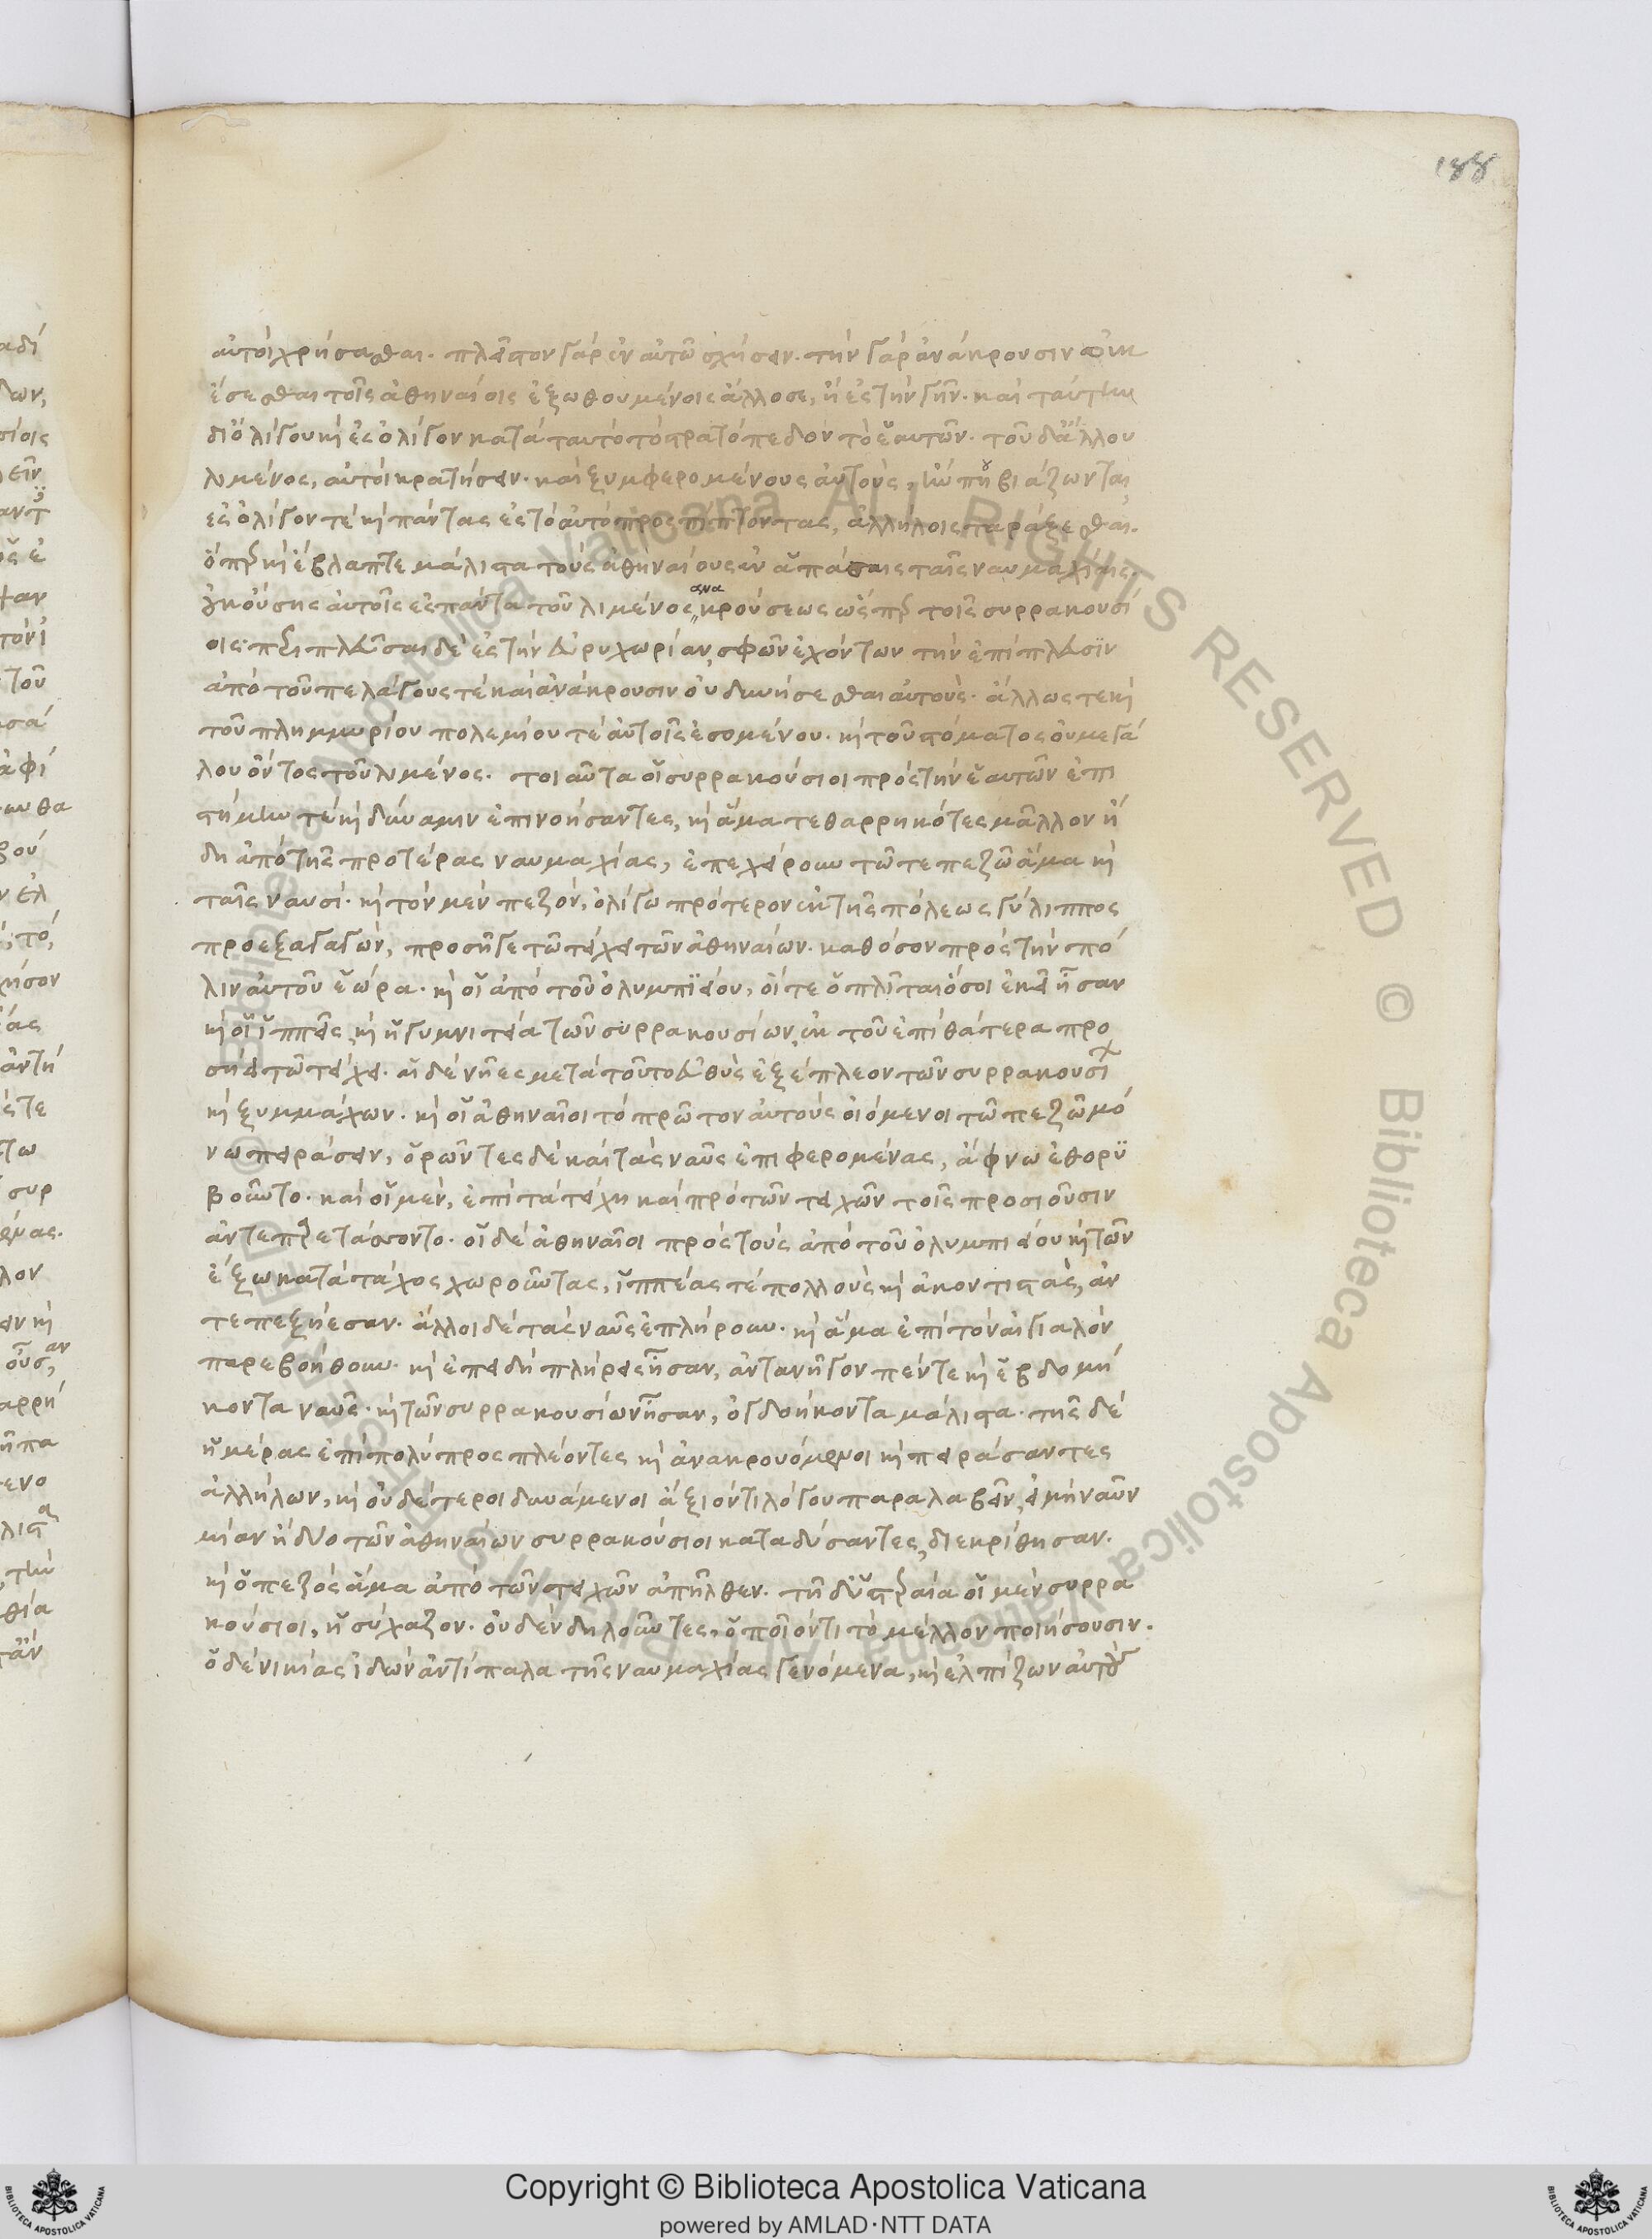 188
αὐτοὶ χρήσασθαι. πλεῖστον γὰρ ἐν αὐτῶ σχήσειν. τὴν γὰρ ἀνάκρουσιν οὐκ
ἔσεσθαι τοῖς ἀθηναίοις ἐξωθουμένοις ἄλλοσε, ἢ ἐς τὴν γῆν. καὶ ταύτην
δι' ὀλίγου κὶ ἐς ὀλίγον κατὰ ταυτὸ τὸ στρατόπεδον τὸ ἑαυτῶν. τοῦ δ' ἄλλου
λιμένος, αὐτοὶ κρατήσειν. καὶ ξυμφερομένους αὐτοὺς, ἤν που βιάζωνται,
ἐς ὀλίγον τὲ κὶ πάντας ἐς τὸ αὐτὸ προσπίπτοντας, ἀλλήλοις ταράξεσθαι.
ὅπερ κὶ ἔβλαπτε μάλιστα τοὺς ἀθηναίους ἐν ἁπάσαις ταῖς ναυμαχίαις,
οὐκ οὔσης αὐτοῖς ἐς πάντα τὸν λιμένος ἀνακρούσεως ὥσπερ τοῖς συρρακουσί
οις· περιπλεῦσαι δὲ ἐς τὴν εὐρυχωρίαν, σφῶν ἐχόντων τὴν ἐπίπλευσϊν
ἀπὸ τοῦ πελάγους τὲ καὶ ἀνάκρουσιν οὐ δυνήσεσθαι αὐτοὺς. ἄλλως τε κὶ
τοῦ πλημμυρίου πολεμίου τὲ αὐτοῖς ἐσομένου. κὶ τοῦ στόματος οὐ μεγά
λου ὄντος τοῦ λιμένος. τοιαῦτα οἱ συρρακούσιοι πρὸς τὴν ἑαυτῶν ἐπι
στήμην τὲ κὶ δύναμιν ἐπινοήσαντες, κὶ ἅμα τεθαρρηκότες μᾶλλον ἤ
δη ἀπὸ τῆς προτέρας ναυμαχίας, ἐπεχείρουν τῶ τε πεζῶ ἅμα κὶ
ταῖς ναυσί. κὶ τὸν μὲν πεζόν, ὀλίγω πρότερον ἐκ τῆς πόλεως γύλιππος
προεξαγαγών, προσῆγε τῶ τείχει τῶν ἀθηναίων. καθόσον πρὸς τὴν πό
λιν αὐτοῦ ἑώρα. κὶ οἱ ἀπὸ τοῦ ὀλυμπϊείου, οἵ τε ὁπλῖται ὅσοι ἐκεῖ ἦσαν
κὶ οἱ ἱππεῖς κὶ ἡ γυμνιτεία τῶν συρρακουσίων, ἐκ τοῦ ἐπὶ θάτερα προ
σήει τῶ τείχει. αἱ δὲ νῆες μετὰ τοῦτο εὐθὺς ἐξέπλεον τῶν συρρακουσί
κὶ ξυμμάχων. κὶ οἱ ἀθηναῖοι τὸ πρῶτον αὐτοὺς οἰόμενοι τῶ πεζῶ μό
νω πειράσειν, ὁρῶντες δὲ καὶ τὰς ναῦς ἐπιφερομένας, ἄφνω ἐθορϋ
βοῦντο. καὶ οἱ μὲν, ἐπὶ τὰ τείχη καὶ πρὸ τῶν τειχῶν τοῖς προσιοῦσιν
ἀντεπαρετάσσοντο. οἱ δὲ ἀθηναῖοι πρὸς τοὺς ἀπὸ τοῦ ὀλυμπιείου κὶ τῶν
ἔξω κατὰ τάχος χωροῦντας, ἱππέας τὲ πολλοὺς κὶ ἀκοντιστὰς, ἀν
τεπεξήεσαν. ἄλλοι δὲ τὰς ναῦς ἐπλήρουν. κὶ ἅμα ἐπὶ τὸν αἰγιαλὸν
παρεβοήθουν. κὶ ἐπειδὴ πλήρεις ἦσαν, ἀντανῆγον πέντε κὶ ἑβδομή
κοντα ναῦς. κὶ τῶν συρρακουσίων ἦσαν, ὀγδοήκοντα μάλιστα. τῆς δὲ
ἡμέρας ἐπὶ πολὺ προσπλέοντες κὶ ἀνακρουόμενοι κὶ πειράσαντες
ἀλλήλων, κὶ οὐδέτεροι δυνάμενοι ἄξιόν τι λόγου παραλαβεῖν, εἰ μὴ ναῦν
μίαν ἢ δύο τῶν ἀθηναίων συρρακούσιοι καταδύσαντες, διεκρίθησαν.
κὶ ὁ πεζὸς ἅμα ἀπὸ τῶν τειχῶν ἀπῆλθεν. τῆ δ' ὑστεραία οἱ μὲν συρρα
κούσιοι, ἡσύχαζον. οὐδὲν δηλοῦντες, ὁποῖόν τι τὸ μέλλον ποιήσουσιν.
ὁ δὲ νικίας ἰδὼν ἀντίπαλα τῆς ναυμαχίας γενόμενα, κὶ ἐλπίζων αὐτοὺς
Copyright © Biblioteca Apostolica Vaticana
powered by AMLAD·NTT DATA